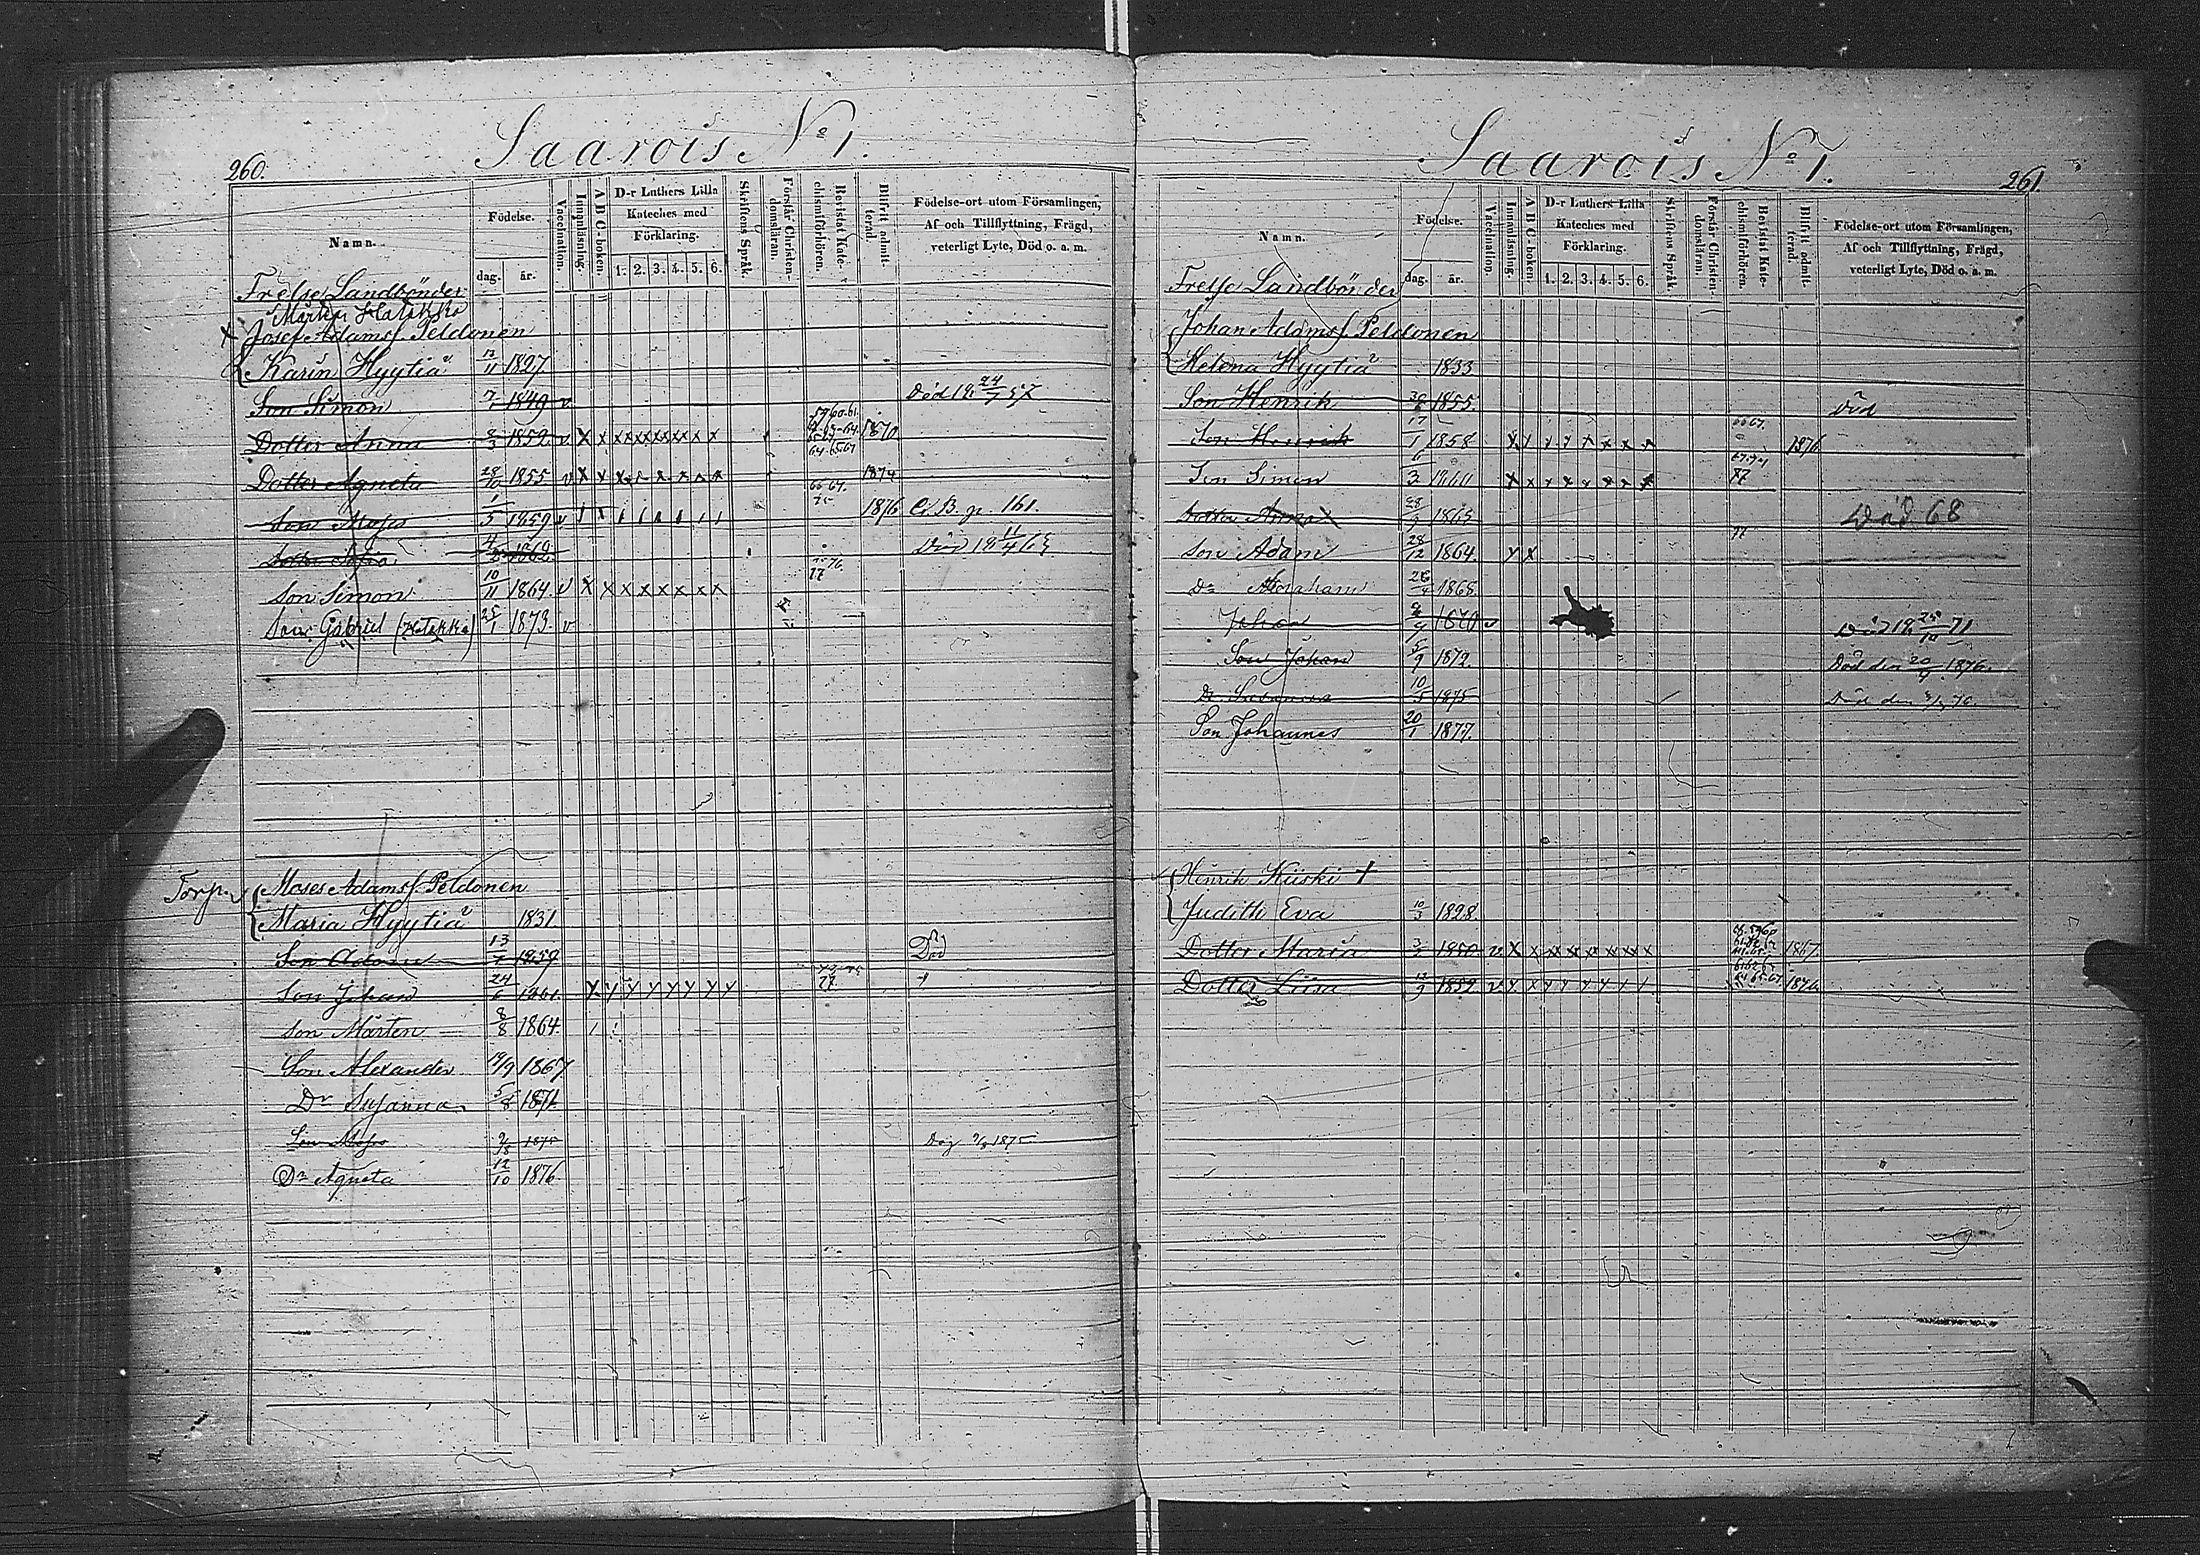 260.
Saarois No 1.
Namn.
Födelse.
dag.
år.
Vaccination.
Innanläsning.
A B C-boken.
D-r Luthers Lilla
Kateches med
Förklaring.
1. 2. 3. 4. 5. 6.
Skriftens Språk.
Förstår Christen-
domsläran.
Bevistat Kate-
chismiförhören.
Blifvit admit-
terad.
Födelse-ort utom Församlingen,
Af och Tillflyttning, Frägd,
veterligt Lyte, Död o. a. m.
Frelse Landbönder
Mårten Hatakka
x Josef Adamsf. Peldonen
Karin Hyytiä 12/11 1827
Son Simon 7/1 1849 v Död 19
Dotter Anna 2/3 1852 v x x x x x x x x x x 1870
Dotter Agneta 28/10 1855 v x x x x x x 66 67. 1874
Son Moses 1/5 1859 v 1876 C. B. p. 161.
Död 19 11/4 63
Son Simon 10/11 1864 v x x x x x x x x 76. 77
Son Gabriel (Hatakka) 25/1 1873. v
Torp.
Moses Adamsf. Peldonen
Maria Hyytiä 1831
Son Adam 13/7 1859 Död
Son Johan 24/6 1861. 77
Son Mårten 8/8 1864.
Son Alexander 19/9 1867
Dr Susanna 5/8 1871
Son Moses 1875
Dr Agneta 12/10 1876.
Saarois No 1.
261
Namn.
Födelse.
dag.
år.
Vaccination.
Innanläsning.
A B C-boken.
D-r Luthers Lilla
Kateches med
Förklaring.
1. 2. 3. 4. 5. 6.
Skriftens Språk.
Förstår Christen-
domsläran.
Bevistat Kate-
chismiförhören.
Blifvit admit-
terad.
Födelse-ort utom Församlingen,
Af och Tillflyttning, Frägd,
veterligt Lyte, Död o. a. m.
Frelse Landbönder
Johan Adamsf. Peldonen
Helena Hyytiä 1833
Son Henrik 1855. Död
Son Henrik 17/1 1858 66 67. 1876
Son Simon 6/3 77
Dotter Anna 1863 Död 68
Son Adam 28/12 1864. 77
Dr Abraham 1865
Johan 1870 v Död 19 25/10 71
Son Johan 5/9 1872. Död den 20/4 1876.
Dr Susanna 10/5 1875 Död den
Son Johannes 20/1 1877.
Henrik Kiiski +
Judith Eva 10/3 1828
Dotter Maria 1850. v x x x x x x x x x 1867.
Dotter Liisa 12/9 1859 1876